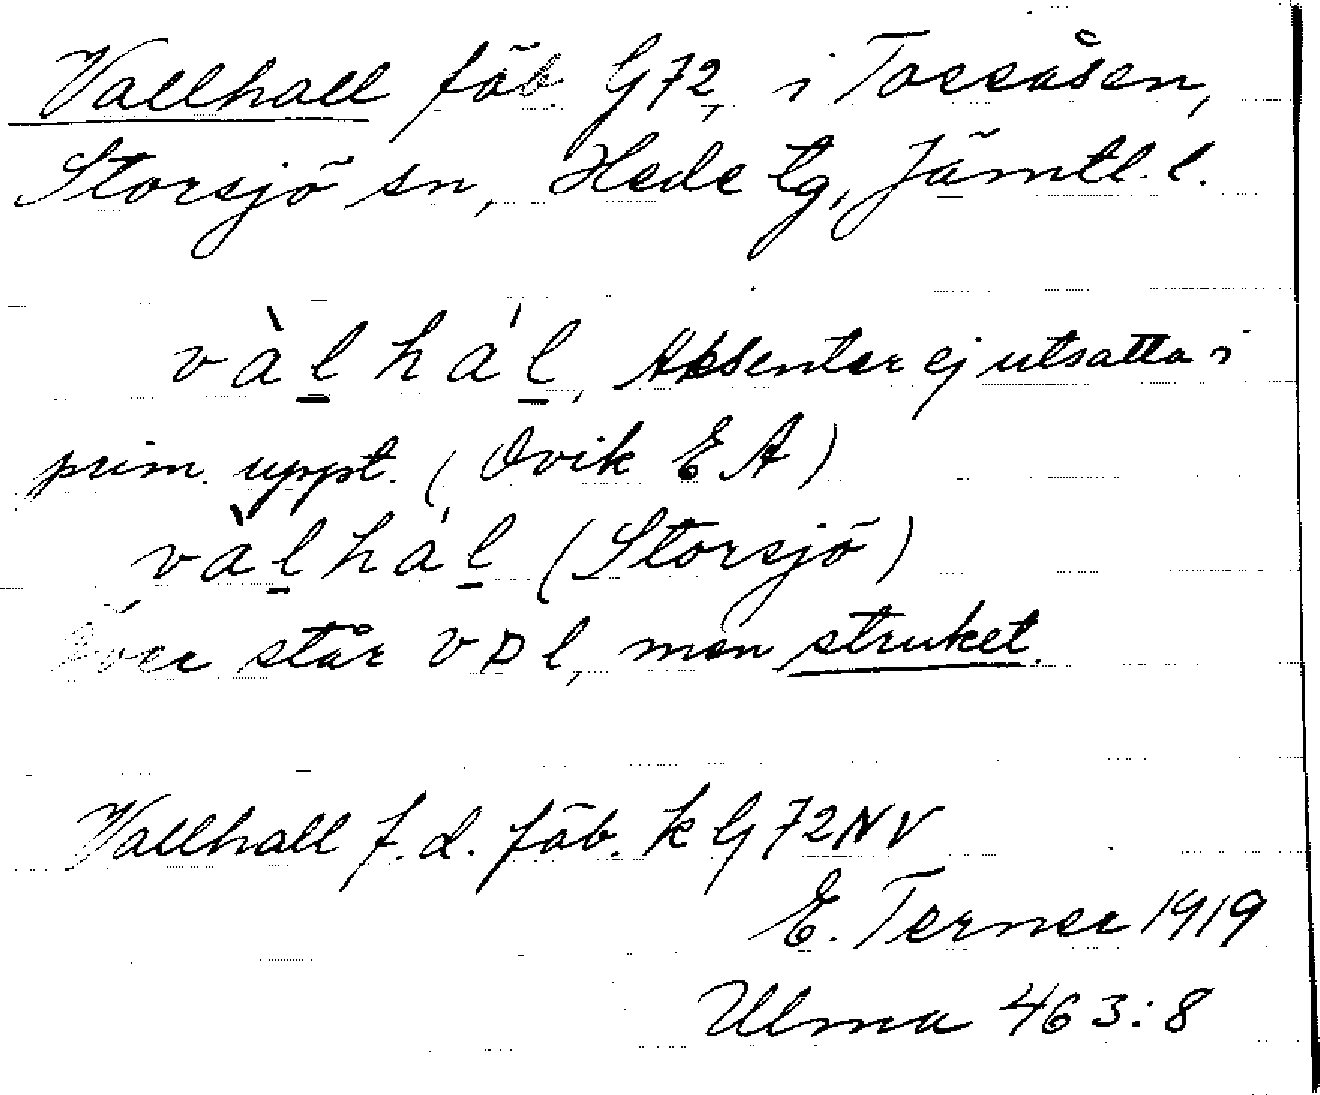 Vallhall fäb. G72, i Tossåsen,
Storsjö sn, Hede tg, Jämtl. l.
và̱lhá̱l, Aksenter ej utsatta i
prim. uppt. (Ovik E A)
và̱lhá̱l (Storsjö)
Över står vɒl, men struket.
Vallhall f.d. fäb. k G72NV
E. Terner 1919
Ulma 463:8